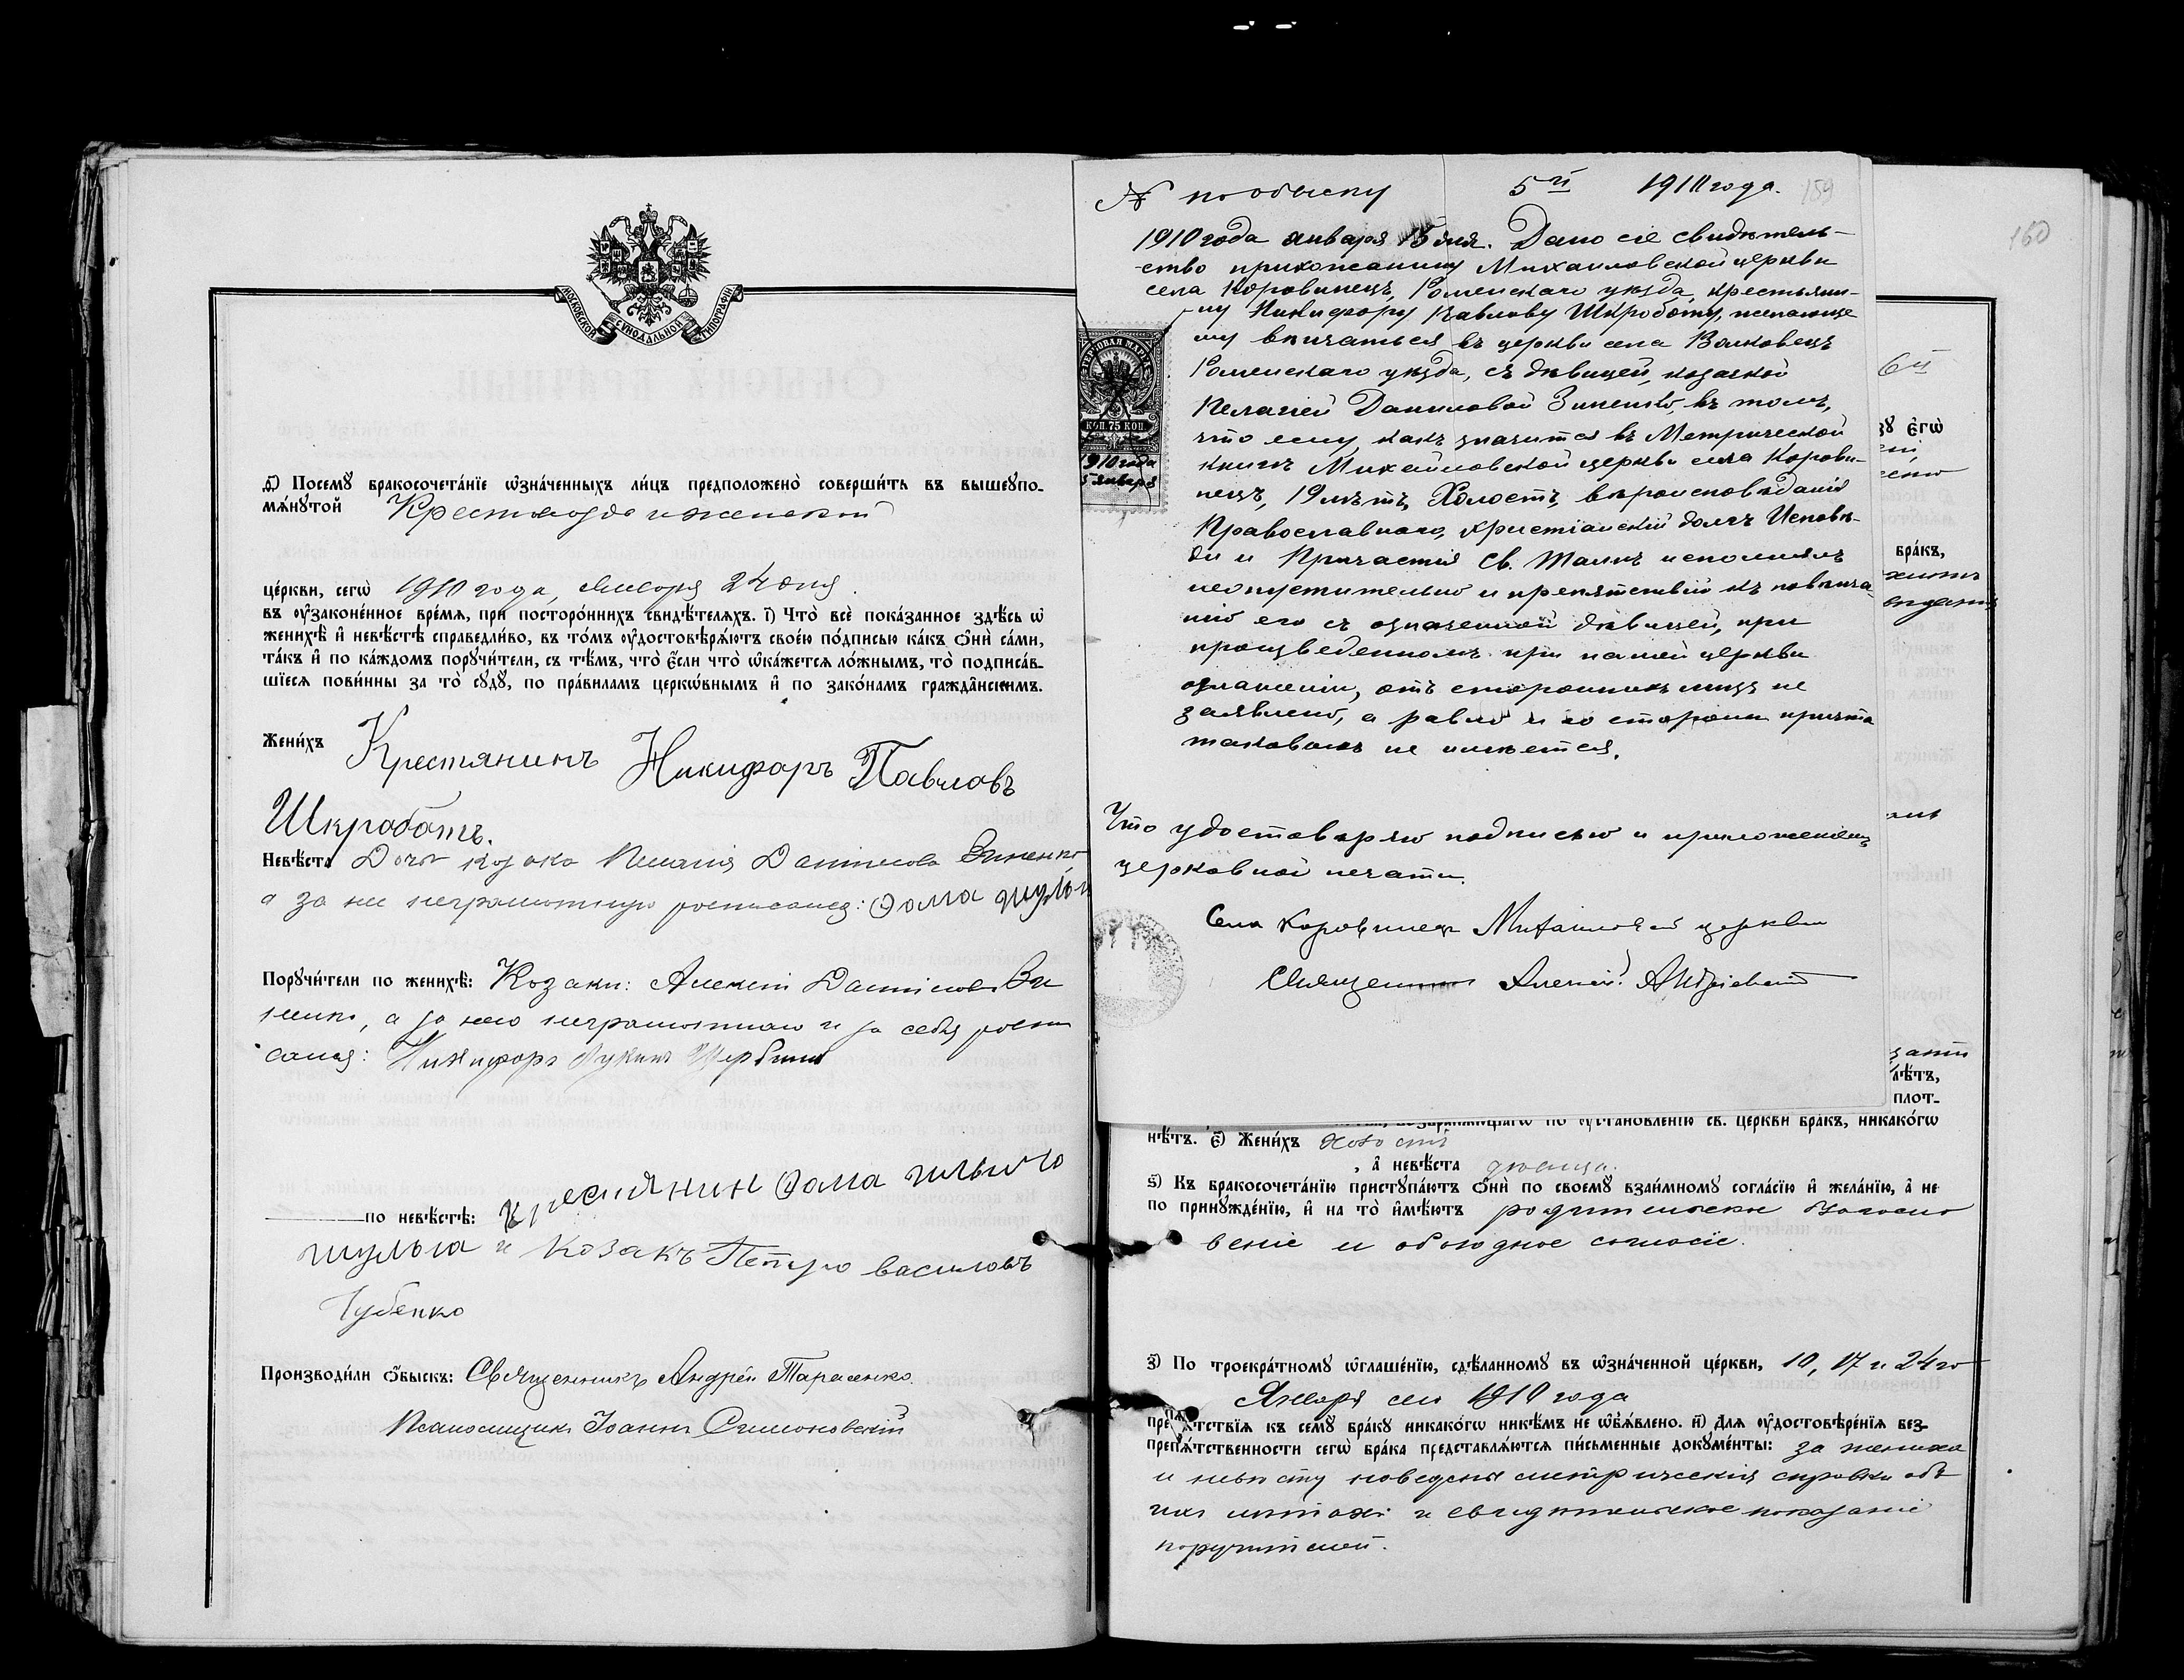 МОСКОВСКОЙ СѴНОДАЛЬНОЙ ТИПОГРАФІИ
Ѳ҃) Посемꙋ бракосочета́нїе ѡ҆зна́ченныхъ ли́цъ предположено̀ соверши́ть въ вышеꙋпо-
мѧ́нꙋтой Крестовоздвиженской
це́ркви, сегѡ̀ 1910 года, Января 24 дня.
въ ᲂу҆законе́нное вре́мѧ, прѝ посторо́ннихъ свидѣ́телѧхъ. і҃) Что̀ всѐ пока́занное здѣ́сь ѡ҆
женихѣ̀ и҆ невѣ́стѣ справедли́во, въ то́мъ ᲂу҆достовѣрѧ́ютъ свое́ю по́дписью ка́къ ѻ҆нѝ са́ми,
та́къ и҆ по ка́ждомъ порꙋчи́тели, съ тѣ́мъ, что̀ є҆́сли что̀ ѡ҆ка́жетсѧ ло́жнымъ, то̀ подписа́в-
шїесѧ пови́нны за то̀ сꙋдꙋ̀, по пра́виламъ церко́внымъ и҆ по зако́намъ гражда́нскимъ.
Жени́хъ Крестянинъ Никифоръ Павловъ
Шкроботъ.
Невѣ́ста Дочь козака Пелагія Даніилова Зиненко
а за нее неграмотную росписался: Ѳома Шульга
Порꙋчи́тели по женихѣ̀: Козаки: Алексій Даніилов Зи
ненко, а за него неграмотнаго и за себя роспи
сался: Никифоръ Лукинъ Щербина
по невѣ́стѣ: Кресиянин Ѳома Ильичо
Шульга и Козакъ Петро Василовъ
Губенко
Производи́ли ѻ҆́быскъ: Священникъ Андрей Тарасенко.
Псаломщикъ Іоаннъ Симоновскій
№ по обыску 5й 1910 года. 159
1910 года января 5 дня. Дано сіе свидѣтель-
ство прихожанину Михайловской церкви
села Коровинецъ, Роменскаго уѣзда, крестьяни-
ну Никифору Павлову Шкроботу, желающе
му вѣнчаться въ церкви села Волковецъ
Роменскаго уѣзда, съ дѣвицей, козачкой
Пелагіей Даниловой Зиненко, въ томъ,
что ему, какъ значится въ Метрической
книгѣ Михайловской церкви села Корови-
нецъ, 19 лѣтъ, Холостъ, вѣроисповѣданія
Православнаго, христіанскій долгъ Исповѣ-
ди и Причастія Св. Таинъ исполнялъ
неопустительно и препятствій къ повѣнча-
нію его съ означенной дѣвицей, при
произведенномъ при нашей церкви
оглашеніи, отъ стороннихъ лицъ не
заявлено, а равно и со стороны причта
таковыхъ не имѣется.
ГЕРБОВАЯ МАРКА
КОП. 75 КОП.
1910 года
5 января
Что удостовѣряю подписью и приложеніемъ
церковной печати.
Села Коровинецъ Михайловской церкви
Священникъ Алексій Андріевскій
160
6й
є҆гѡ̀
бра́къ,
лѣ́тъ,
плот-
по ᲂу҆становле́нїю св. це́ркви бра́къ, никако́гѡ
нѣ́тъ. є҃) Жени́хъ холостъ
, а҆ невѣ́ста дѣвица.
ѕ҃) Къ бракосочета́нїю пристꙋпа́ютъ ѻ҆нѝ по своемꙋ̀ взаи́мномꙋ согла́сїю и҆ жела́нїю, а҆ не
по принꙋжде́нїю, и҆ на то̀ и҆мѣ́ютъ родительское благосло
веніе и обоюдное согласіе.
з҃) По троекра́тномꙋ ѡ҆глаше́нїю, сдѣ́ланномꙋ въ ѡ҆зна́ченной це́ркви, 10, 17 и 24 го
Января сего 1910 года
препѧ́тствїѧ къ семꙋ̀ бра́кꙋ никако́гѡ никѣ́мъ не ѡ҆б̾ѧ́влено. и҃) Длѧ ᲂу҆достовѣре́нїѧ без-
препѧ́тственности сегѡ̀ бра́ка представлѧ́ютсѧ пи́сьменные докꙋме́нты: за жениха
и невѣсту наведены метрическія справки объ
ихъ лѣтахъ и свидѣтельское показаніе
поручителей.